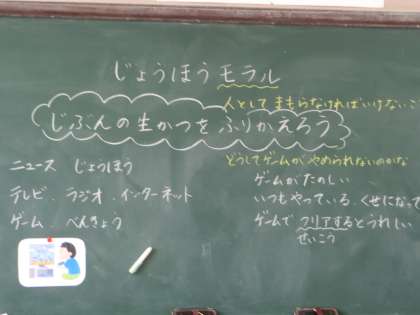 じょうほうモラル
人としてまもらなければいけない
じぶんの生かつをふりかえろう
ニュース じょうほう
テレビ、ラジオ、インターネット
ゲーム べんきょう
どうしてゲームがやめられないのかな
ゲームがたのしい
いつもやっている、くせになって
ゲームでクリアするとうれしい
せいこう